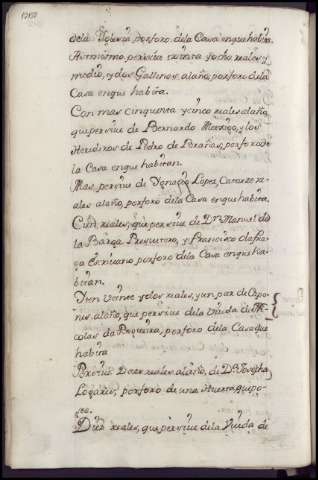 dela Yglesia, por foro dela Casa en que habita.
Asimismo, percivia treinta y ocho reales y
medio, y dos Gallinas alaño, por foro dela
Casa en que habita.
Con mas cinquenta y cinco reales alaño,
que percive de Bernardo, y los
Herederos de Pedro de, por foro de
la Casa en que habitan.
Mas, percive de Ygnacio Lopez, Catorze re-
ales alaño, por foro dela Casa en que habita.
Cien reales, que percive de Dn. Manuel de
la Barga Presvitero, y Francisco dela
Escrivano, por foro dela Casa en que ha-
bitan.
Yten veinte y dos reales, y un par de Capo-
nes, alaño, que percive dela Viuda de Ni-
colas da Riqueira, por foro dela Casa que
habita
Percive Doce reales alaño, de Da. Josepha
, por foro de una Huerta que po-
see.
Diez reales, que percive dela Viuda de